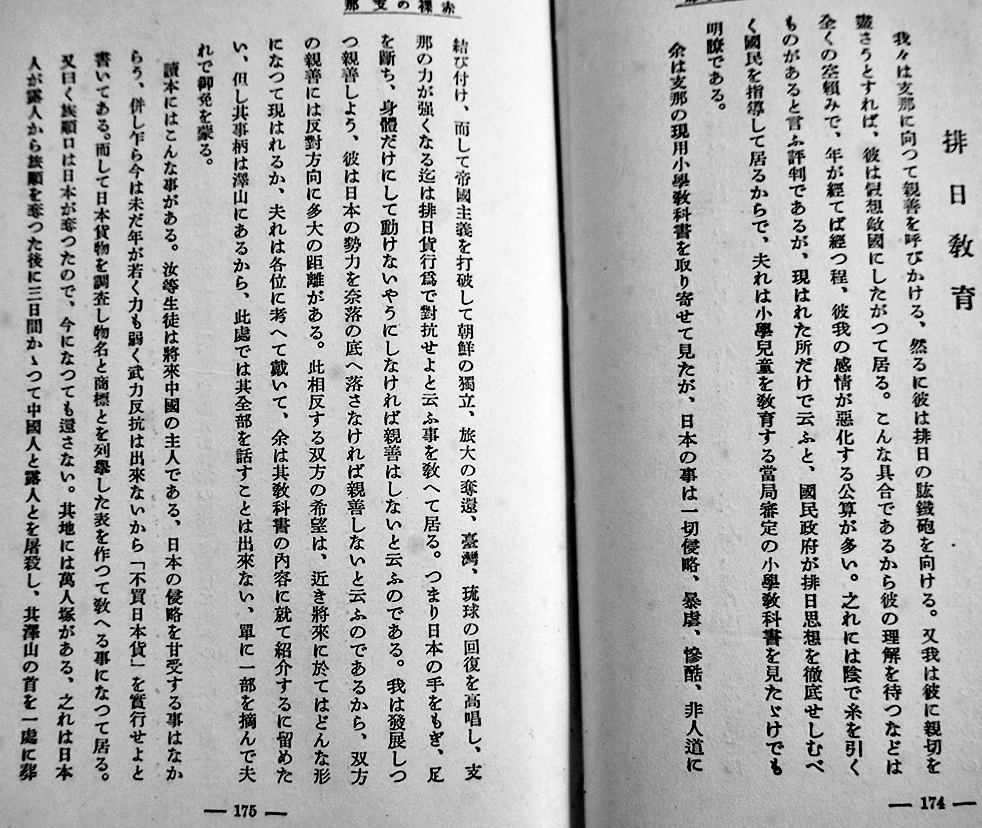 排日教育
我々は支那に向つて親善を呼びかける、然るに彼は排日の肱鐵砲を向ける。又我は彼に親切を
盡さうとすれば、彼は假想敵國にしたがつて居る。こんな具合であるから彼の理解を待つなどは
全くの空頼みで、年が經てば經つ程、彼我の感情が惡化する公算が多い。之れには陰で糸を引く
ものがあると言ふ評判であるが、現はれた所だけで云ふと、國民政府が排日思想を徹底せしむべ
く國民を指導して居るからで、夫れは小學兒童を教育する當局審定の小學教科書を見たゞけでも
明瞭である。
余は支那の現用小學教科書を取り寄せて見たが、日本の事は一切侵略、暴虐、慘酷、非人道に
― 174 ―
赤裸の支那
結び付け、而して帝國主義を打破して朝鮮の獨立、旅大の奪還、臺灣、琉球の回復を高唱し、支
那の力が強くなる迄は排日貨行爲で對抗せよと云ふ事を敎へて居る。つまり日本の手をもぎ、足
を斷ち、身體だけにして動けないやうにしなければ親善はしないと云ふのである。我は發展しつ
つ親善しよう、彼は日本の勢力を奈落の底へ落さなければ親善しないと云ふのであるから、双方
の親善には反對方向に多大の距離がある。此相反する双方の希望は、近き將來に於てはどんな形
になつて現はれるか、夫れは各位に考へて戴いて、余は其敎科書の內容に就て紹介するに留めた
い、但し其事柄は澤山にあるから、此處では其全部を話すことは出來ない、單に一部を摘んで夫
れで御免を蒙る。
讀本にはこんな事がある。汝等生徒は將來中國の主人である、日本の侵略を甘受する事はなか
らう、併し乍ら今は未だ年が若く力も弱く武力反抗は出來ないから「不買日本貨」を實行せよと
書いてある。而して日本貨物を調査し物名と商標とを列擧した表を作つて敎へる事になつて居る。
又曰く旅順口は日本が奪つたので、今になつても還さない。其地には萬人塚がある、之れは日本
人が露人から旅順を奪つた後に三日間かゝつて中國人と露人とを屠殺し、其澤山の首を一處に葬
― 175 ―